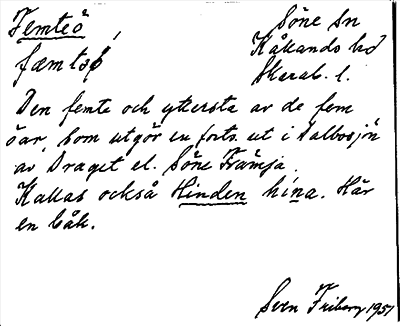 Femteö Söne Sn
fæmtøƒ Kållands hd
Skarab. l.
Den femte och yttersta av de fem
öar, som utgör en forts. ut i Dalbosjön
av Draget el. Söne Främja.
Kallas också Hinden hina. Här
en båk.
Sven Friberg 1951